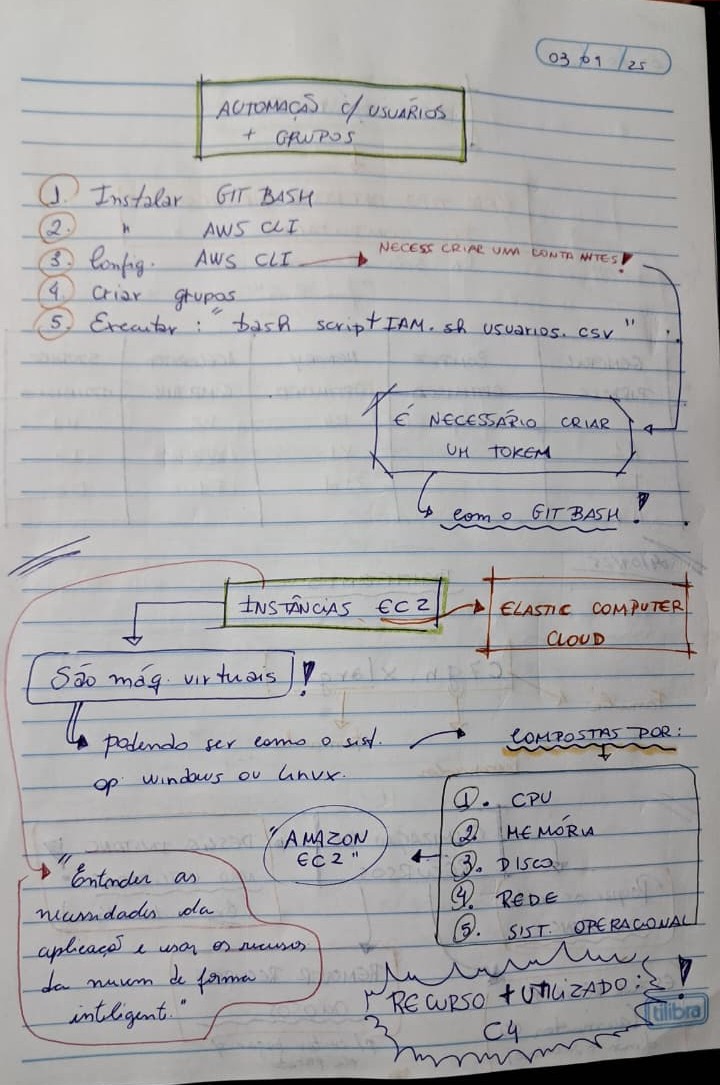 03/01/25
AUTOMAÇÃO c/ USUÁRIOS
+ GRUPOS
1. Instalar GIT BASH
2. " AWS CLI
3. Config. AWS CLI → NECESS CRIAR UMA CONTA ANTES!
4. Criar grupos
5. Executar: "bash script IAM.sh usuarios.csv"
É NECESSÁRIO CRIAR
UM TOKEM
com o GIT BASH!
INSTÂNCIAS EC2 → ELASTIC COMPUTER
CLOUD
São máq. virtuais!
podendo ser como o sist.
op. windows ou Linux.
COMPOSTAS POR:
1. CPU
2. MEMÓRIA
3. DISCO
4. REDE
5. SIST. OPERACIONAL
"AMAZON
EC2"
"Entender as
necessidades da
aplicação e usar os recursos
da nuvem de forma
inteligent."
RECURSO + UTILIZADO:
C4
!
tilibra